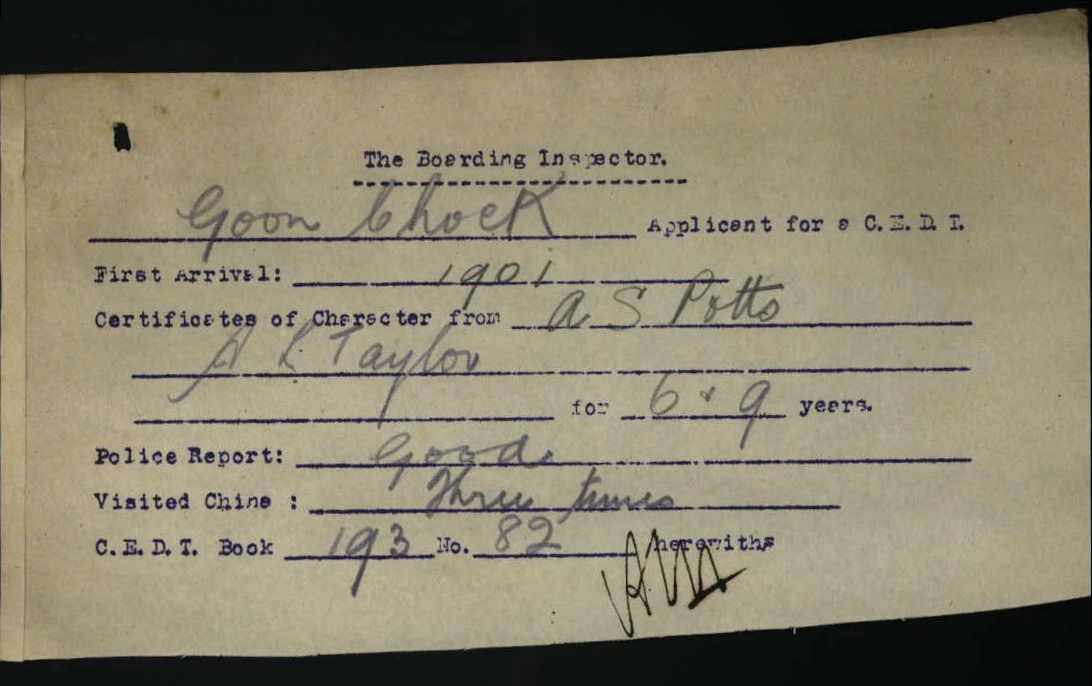 The Boarding Inspector.
Goon Chock Applicant for a C.E.D.T.
First Arrival: 1901
Certificates of Character from A S Potts
A L Taylor
for 6 & 9 years.
Police Report: Good.
Visited China : Three times
C.E.D.T. Book 193 No. 82 herewith